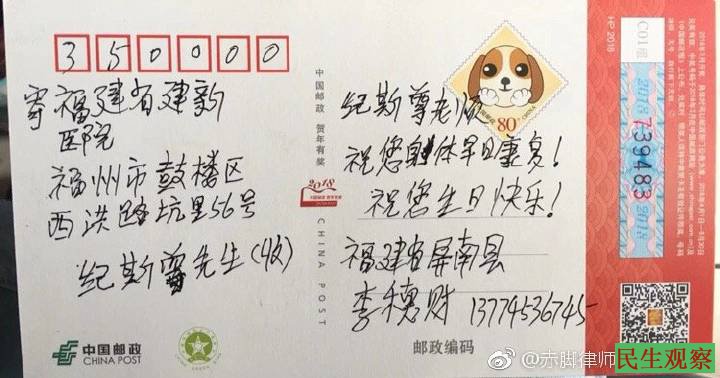 350000
寄福建省建新
医院
福州市鼓楼区
西洪路坑里56号
纪斯尊先生(收)
中国邮政
CHINA POST
中国邮政 贺年有奖
2018
CHINA POST
80分
中国邮政
CHINA
纪斯尊老师
祝您身体早日康复!
祝您生日快乐!
福建省屏南县
李穗财 13774536745
邮政编码
HP 2018
C01组
2018
739483
2018
@赤脚律师
民生观察